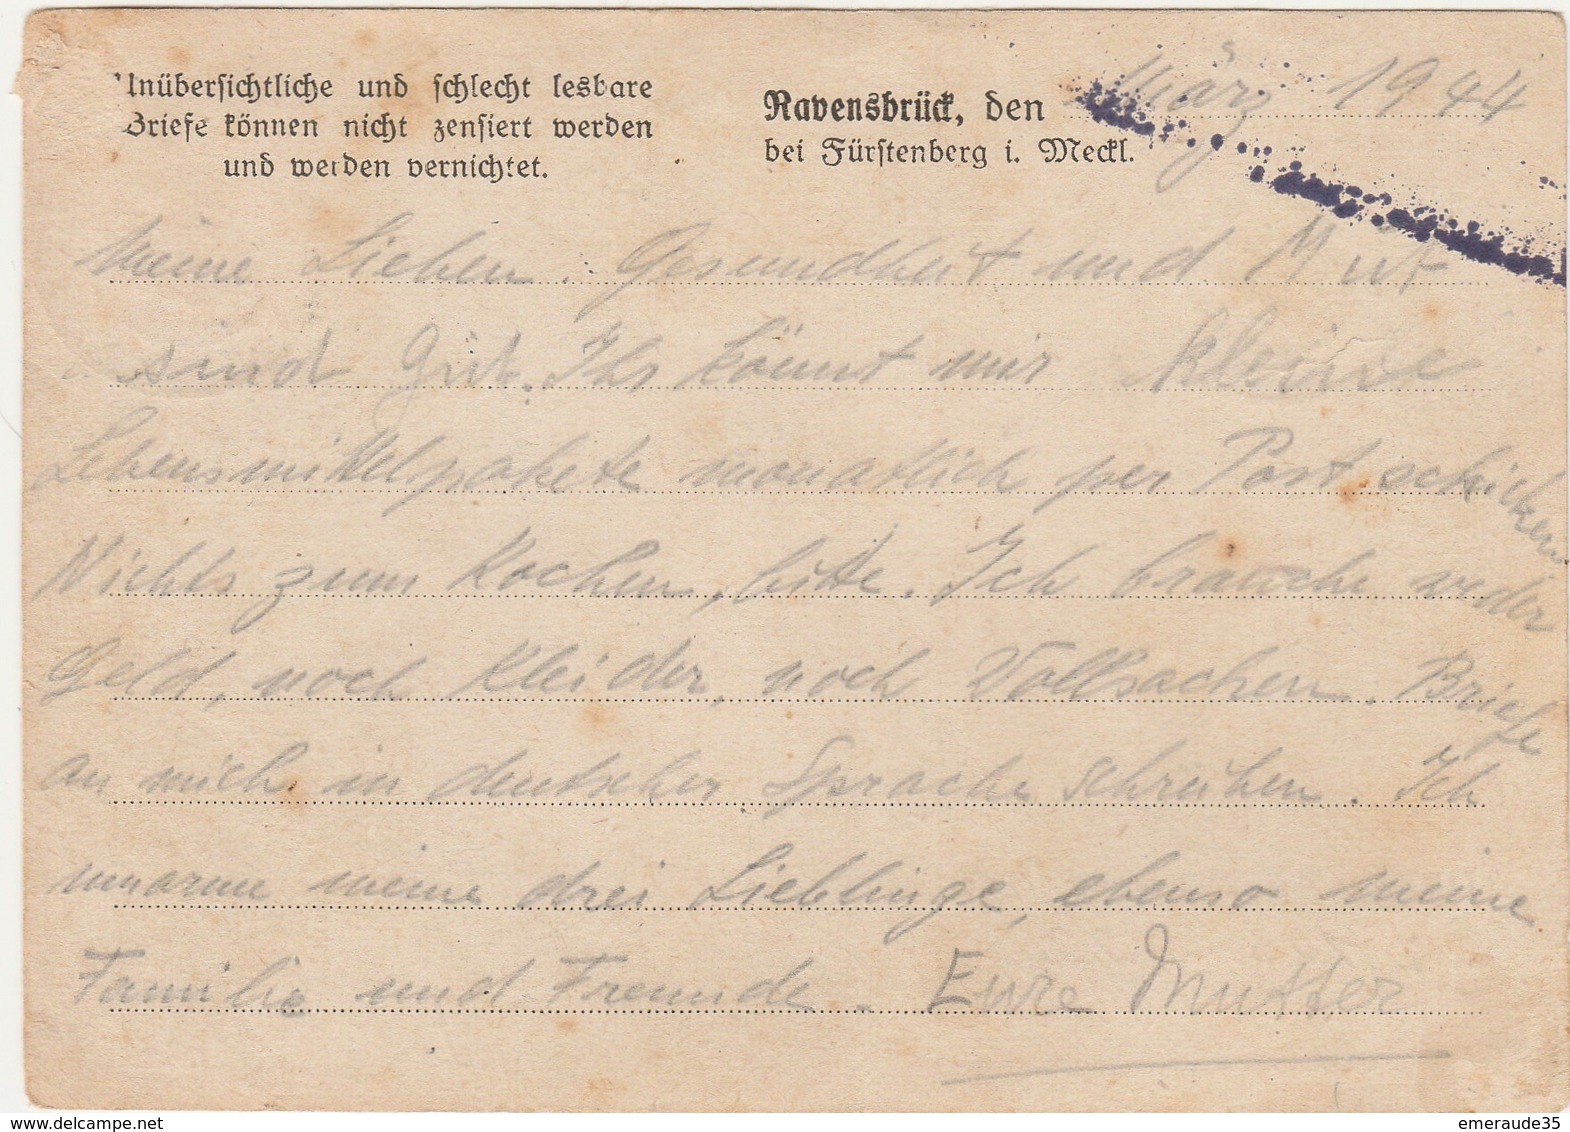 Unübersichtliche und schlecht lesbare
Briefe können nicht zensiert werden
und werden vernichtet.
Ravensbrück, den März 1944
bei Fürstenberg i. Meckl.
Meine Lieben. Gesundheit und Mut
sind gut. Ihr könnt mir kleine
Lebensmittelpakete monatlich per Post schicken
Nichts zum Kochen, bitte. Ich brauche weder
Geld, noch Kleider, noch Vollsachen. Briefe
an mich in deutscher Sprache schreiben. Ich
umarme meine drei Lieblinge, ebenso meine
Familie und Freunde. Eure Mutter
www.delcampe.net
emeraude35